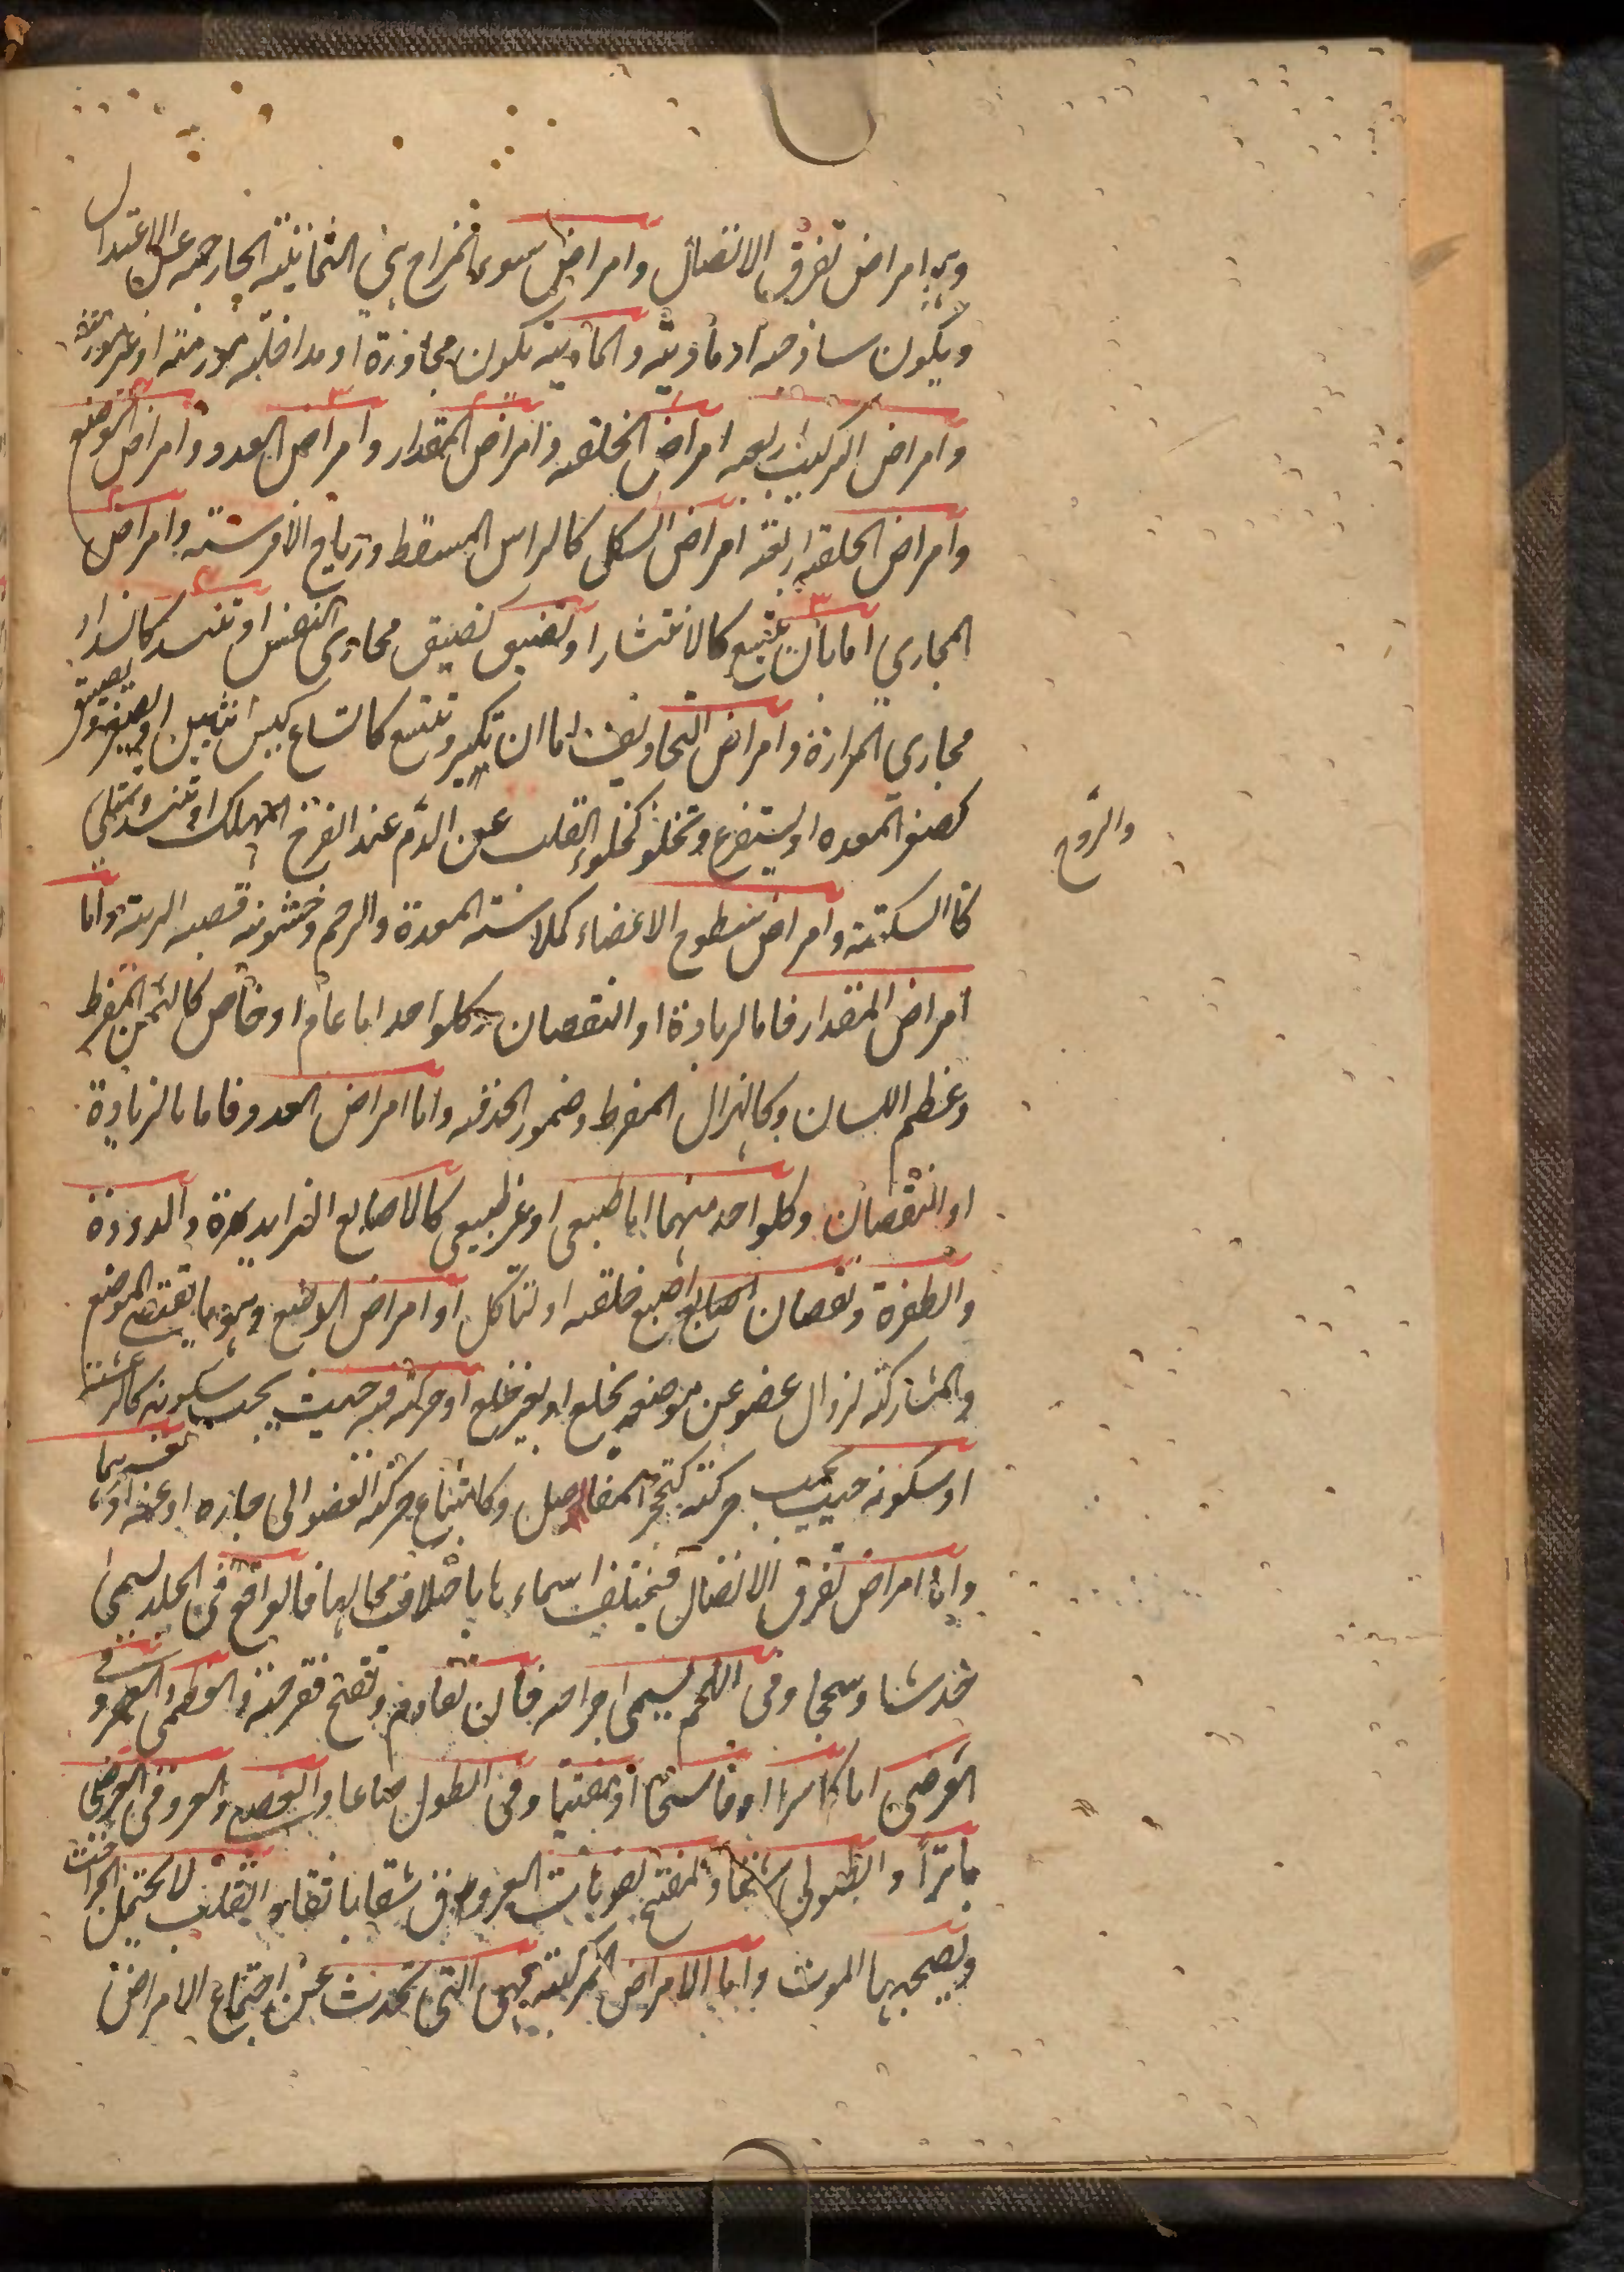 وهي امراض تفرق الاتصال وامراض سوء المزاج هي الثمانية الخارجه عن الاعتدال
ويكون ساذجه او مادية والمادية يكون مجاورة او مداخله مورمة او غير مورمة
وامراض التركيب اربعه امراض الخلقه وامراض المقدار وامراض العدد وامراض الوضع
وامراض الخلقه اربعة امراض الشكل كالراس المسقط ورياح الافرسة وامراض
المجاري اما بان تتسع كالانتشار او تضيق كضيق مجاري النفس او تنسد كانسداد
مجاري المرارة وامراض التجاويف اما ان تكبر وتتسع كاتساع كيس انثيين او تصغر وتضيق
كصغر المعده او يستفرغ وتخلو كخلو القلب عن الدم عند الفرح المهلك او تنسد وتمتلى
والروح
كالسكتة وامراض سطوح الاعضاء كملاسة المعدة والرحم وخشونة قصبه الرية واما
امراض المقدار فاما لزيادة او النقصان وكلواحد اما عام او خاص كالسمن المفرط
وعظم اللسان وكالهزال المفرط وضمور الحدقه واما امراض العدد فاما بالزيادة
او النقصان وكلواحد منهما اما طبيعي او غير طبيعي كالاصابع الزايدة والدودة
والظفرة ونقصان اصابع اصبع خلقه او لتاكل او امراض الوضع وهو ما يقتضي الموضع
والمشاركة لزوال عضو عن موضعه بخلع او بغير خلع او حركته فيه حيث يجب سكونه كالرعشة
او سكونه حيث يجب حركته كتحجر المفاصل وكامتناع حركة العضو الى جاره او عنه او
واما امراض تفرق الاتصال فيختلف اسماءها باختلاف محالها فالواقع في الجلد يسمى
خدشا وسحجا وفي اللحم يسمى جراحه فان تقادم وتقيح فقرحة والعظمي
العرضي اما كاسرا او فاسخا او مفتتا وفي الطول صادعا والعصبي والعروقي العرضي
باترًا والطولي شقا والمفتح لفوهات العروق شقا باثقا والقلب لا يحتمل الجراحة
ويصحبها الموت واما الامراض المركبة فهي التي تحدث عن اجتماع الامراض